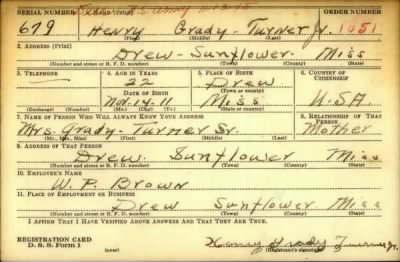 SERIAL NUMBER 1. NAME (Print) ORDER NUMBER
679 Henry Grady Turner Jr. 1051
(First) (Middle) (Last)
2. ADDRESS (Print)
Drew - Sunflower - Miss
(Number and street or R. F. D. number) (Town) (County) (State)
3. TELEPHONE 4. AGE IN YEARS 5. PLACE OF BIRTH 6. COUNTRY OF CITIZENSHIP
22 Drew
(Town or county)
DATE OF BIRTH
Nov. 14-11 Miss U.S.A.
(Exchange) (Number) (Mo.) (Day) (Yr.) (State or country)
7. NAME OF PERSON WHO WILL ALWAYS KNOW YOUR ADDRESS 8. RELATIONSHIP OF THAT PERSON
Mrs. Grady Turner Sr. Mother
(Mr., Mrs., Miss) (First) (Middle) (Last)
9. ADDRESS OF THAT PERSON
Drew Sunflower Miss
(Number and street or R. F. D. number) (Town) (County) (State)
10. EMPLOYER'S NAME
W. P. Brown
11. PLACE OF EMPLOYMENT OR BUSINESS
Drew Sunflower Miss
(Number and street or R. F. D. number) (Town) (County) (State)
I AFFIRM THAT I HAVE VERIFIED ABOVE ANSWERS AND THAT THEY ARE TRUE.
REGISTRATION CARD
D. S. S. Form 1 (over) Henry Grady Turner Jr.
(Registrant's signature)